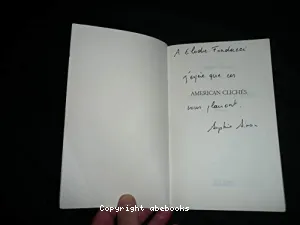 A Elodie
j'espère que ces
AMERICAN CLICHÉS
vous plairont.
Sophie
Copyright abebooks